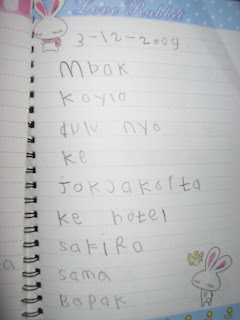 Love Rabbit
3-12-2009
Mbak
kayla
dulu nya
ke
jokjakarta
ke hotel
sakira
sama
Bapak